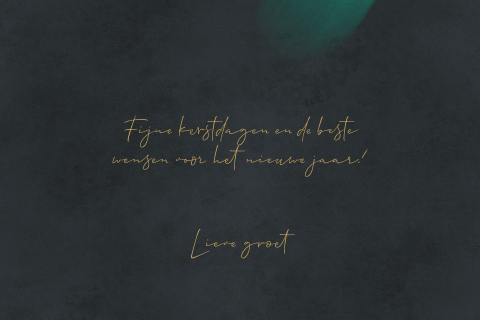 Fijne kerstdagen en de beste
wensen voor het nieuwe jaar!
Lieve groet